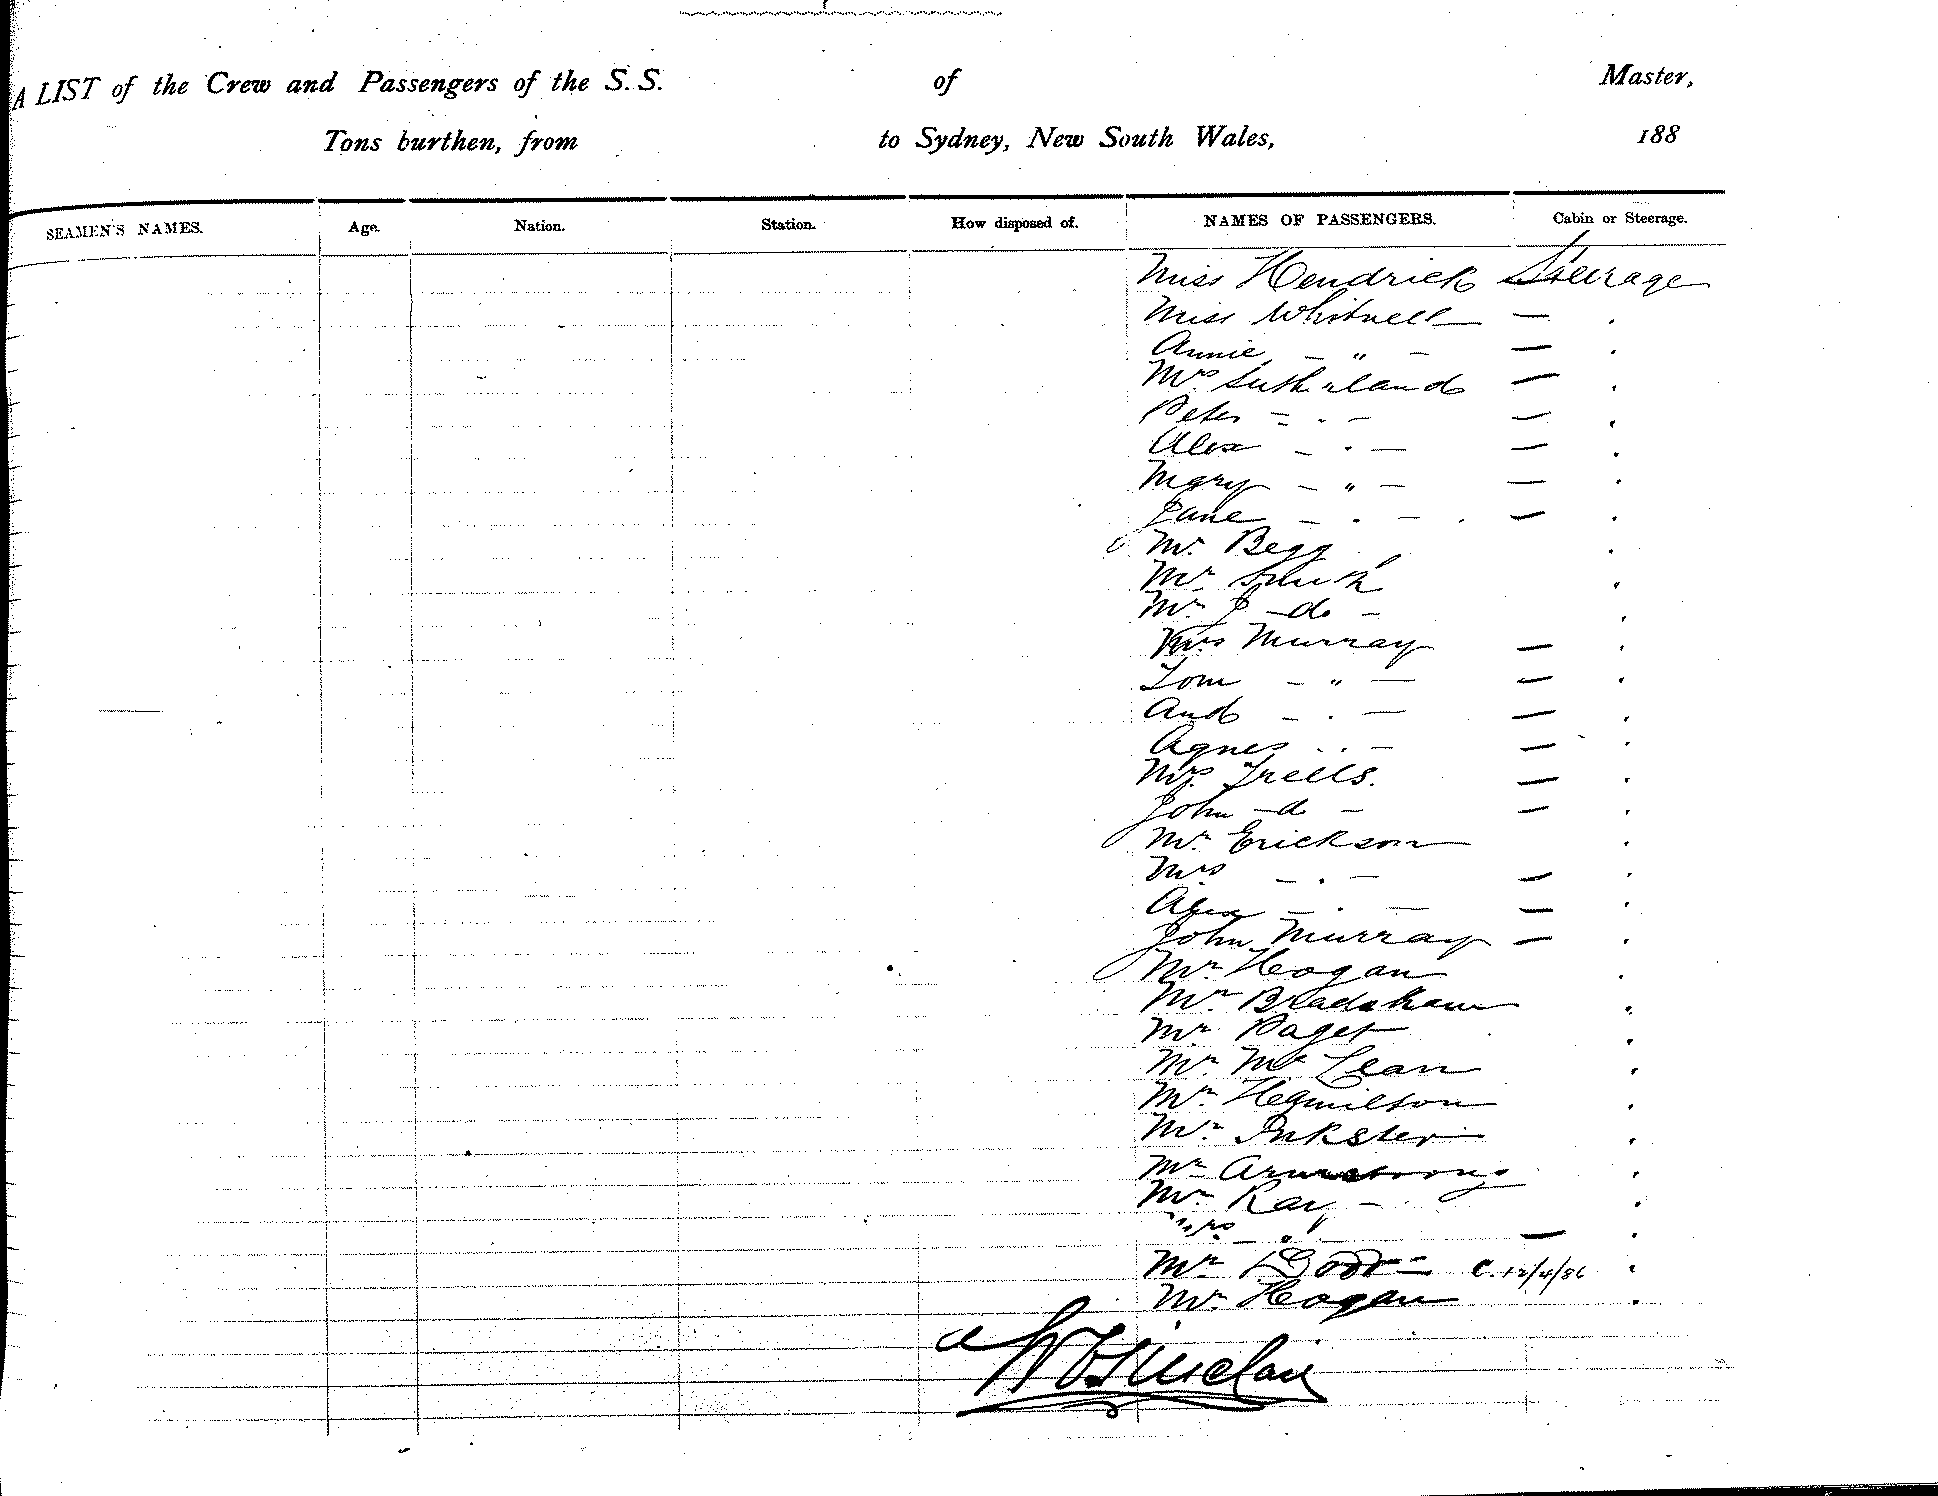 A LIST of the Crew and Passengers of the S. S. of Master,
Tons burthen, from to Sydney, New South Wales, 188
SEAMEN'S NAMES. Age. Nation. Station. How disposed of. NAMES OF PASSENGERS. Cabin or Steerage.
Miss Hendrick Steerage
Miss Whitnell — "
Annie - " - — "
Mrs Sutherland — "
Peter - " - — "
Alex - " - — "
Mary - " - — "
Jane - " - — "
Mr. Begg "
Mr Smith "
Mr J - do - "
Mrs Murray — "
Tom - " - — "
And - " - — "
Agnes " - — "
Mrs Trells. — "
John - do - — "
Mr Erickson "
Mrs - " - — "
Alex - " - — "
John Murray — "
Mr Hogan "
Mr Bradshaw "
Mr Paget "
Mr McLean "
Mr Hamilton "
Mr Inkster "
Mr Armstrong "
Mr Kay - "
Mrs - " — "
Mr C. 12/4/86 "
Mr Hogan "
Sinclair